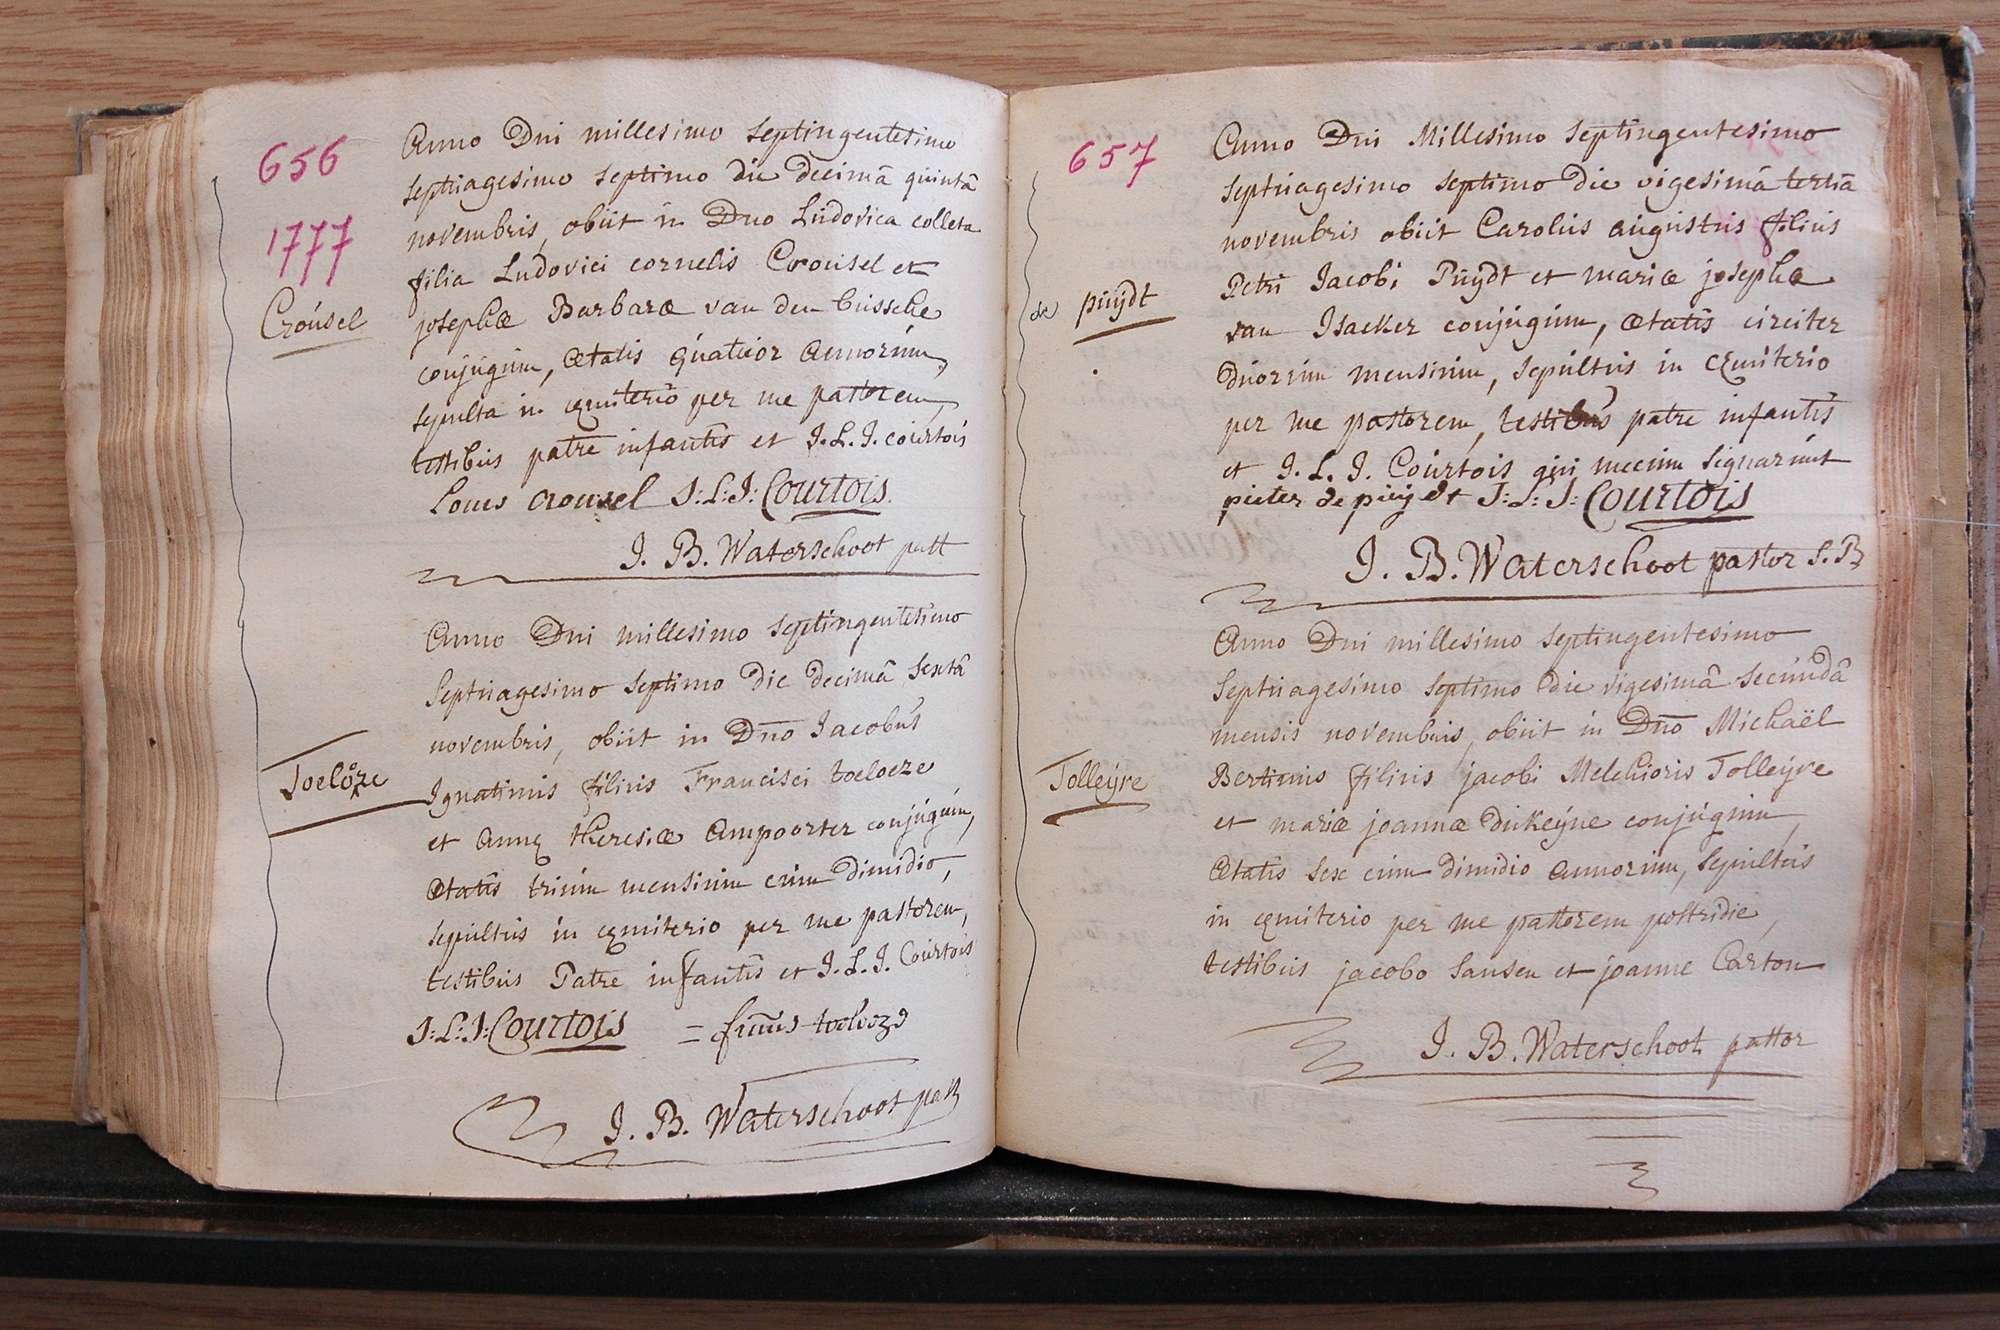 656
1777
Croúsel
Anno Dni millesimo septingentesimo
septuagesimo septimo die decimâ quintâ
novembris, obiit in Dno Ludovica colleta
filia Ludovici cornelis Crousel et
josephæ Barbaræ van den bussche
conjugum, ætatis quatuor annorum,
sepulta in cęmiterio per me pastorem,
testibus patre infantis et J. L. J. courtois
Louis crousel J: L: J: Courtois.
J. B. Waterschoot past
Toeloze
Anno Dni millesimo septingentesimo
septuagesimo septimo die decimâ sextâ
novembris, obiit in Dno Jacobus
Ignatius filius Francisci toeloeze
et Annę theresiæ Ampoorter conjugum,
ætatis trium mensium cum dimidio,
sepultus in cęmiterio per me pastorem,
testibus Patre infantis et J. L. J. Courtois
J: L: J: Courtois = toeloeze
J. B. Waterschoot past
657
de puÿdt
Anno Dni Millesimo septingentesimo
septuagesimo septimo die vigesimâ tertiâ
novembris obiit Carolus augustus filius
Petri Jacobi Puÿdt et mariæ josephæ
van Isacker conjugum, ætatis circiter
duorum mensium, sepultus in cęmiterio
per me pastorem, testibus patre infantis
et J. L. J. Courtois qui mecum signarunt
pieter de puijdt J: L: J: Courtois
J. B. Waterschoot pastor S. B
Tolleÿre
Anno Dni millesimo septingentesimo
septuagesimo septimo die vigesimâ secundâ
mensis novembris, obiit in Dno Michaël
Bertinus filius jacobi Melchioris Tolleÿre
et mariæ joannæ dukeÿne conjugum,
ætatis sex cum dimidio annorum, sepultus
in cęmiterio per me pastorem postridie,
testibus jacobo sansen et joanne Carton
J. B. Waterschoot pastor